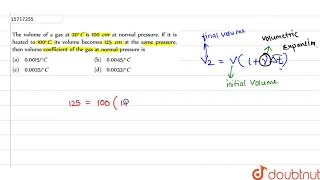 15717255
The volume of a gas at 20°C is 100 cm at normal pressure. If it is
heated to 100°C, its volume becomes 125 cm at the same pressure,
then volume coefficient of the gas at normal pressure is
(a) 0.0015/°C (b) 0.0045/°C
(c) 0.0025/°C (d) 0.0033/°C
final volume
volumetric
expansion
V₂ = V(1+γΔt)
initial volume
125 = 100 (1
doubtnut